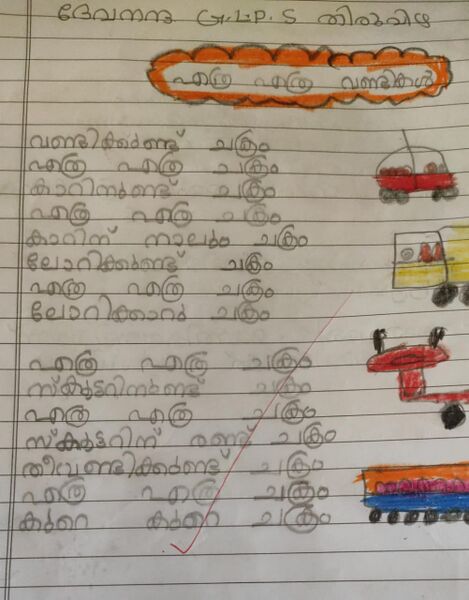 ദേവനന്ദ G.L.P.S തിരുവിഴ
എത്ര എത്ര വണ്ടികൾ
വണ്ടിക്കുണ്ട് ചക്രം
എത്ര എത്ര ചക്രം
കാറിനുണ്ട് ചക്രം
എത്ര എത്ര ചക്രം
കാറിന് നാലും ചക്രം
ലോറിക്കുണ്ട് ചക്രം
എത്ര എത്ര ചക്രം
ലോറിക്കാറു ചക്രം
എത്ര എത്ര ചക്രം
സ്കൂട്ടറിനുണ്ട് ചക്രം
എത്ര എത്ര ചക്രം
സ്കൂട്ടറിന് രണ്ട് ചക്രം
തീവണ്ടിക്കുണ്ട് ചക്രം
എത്ര എത്ര ചക്രം
കുറെ കുറെ ചക്രം